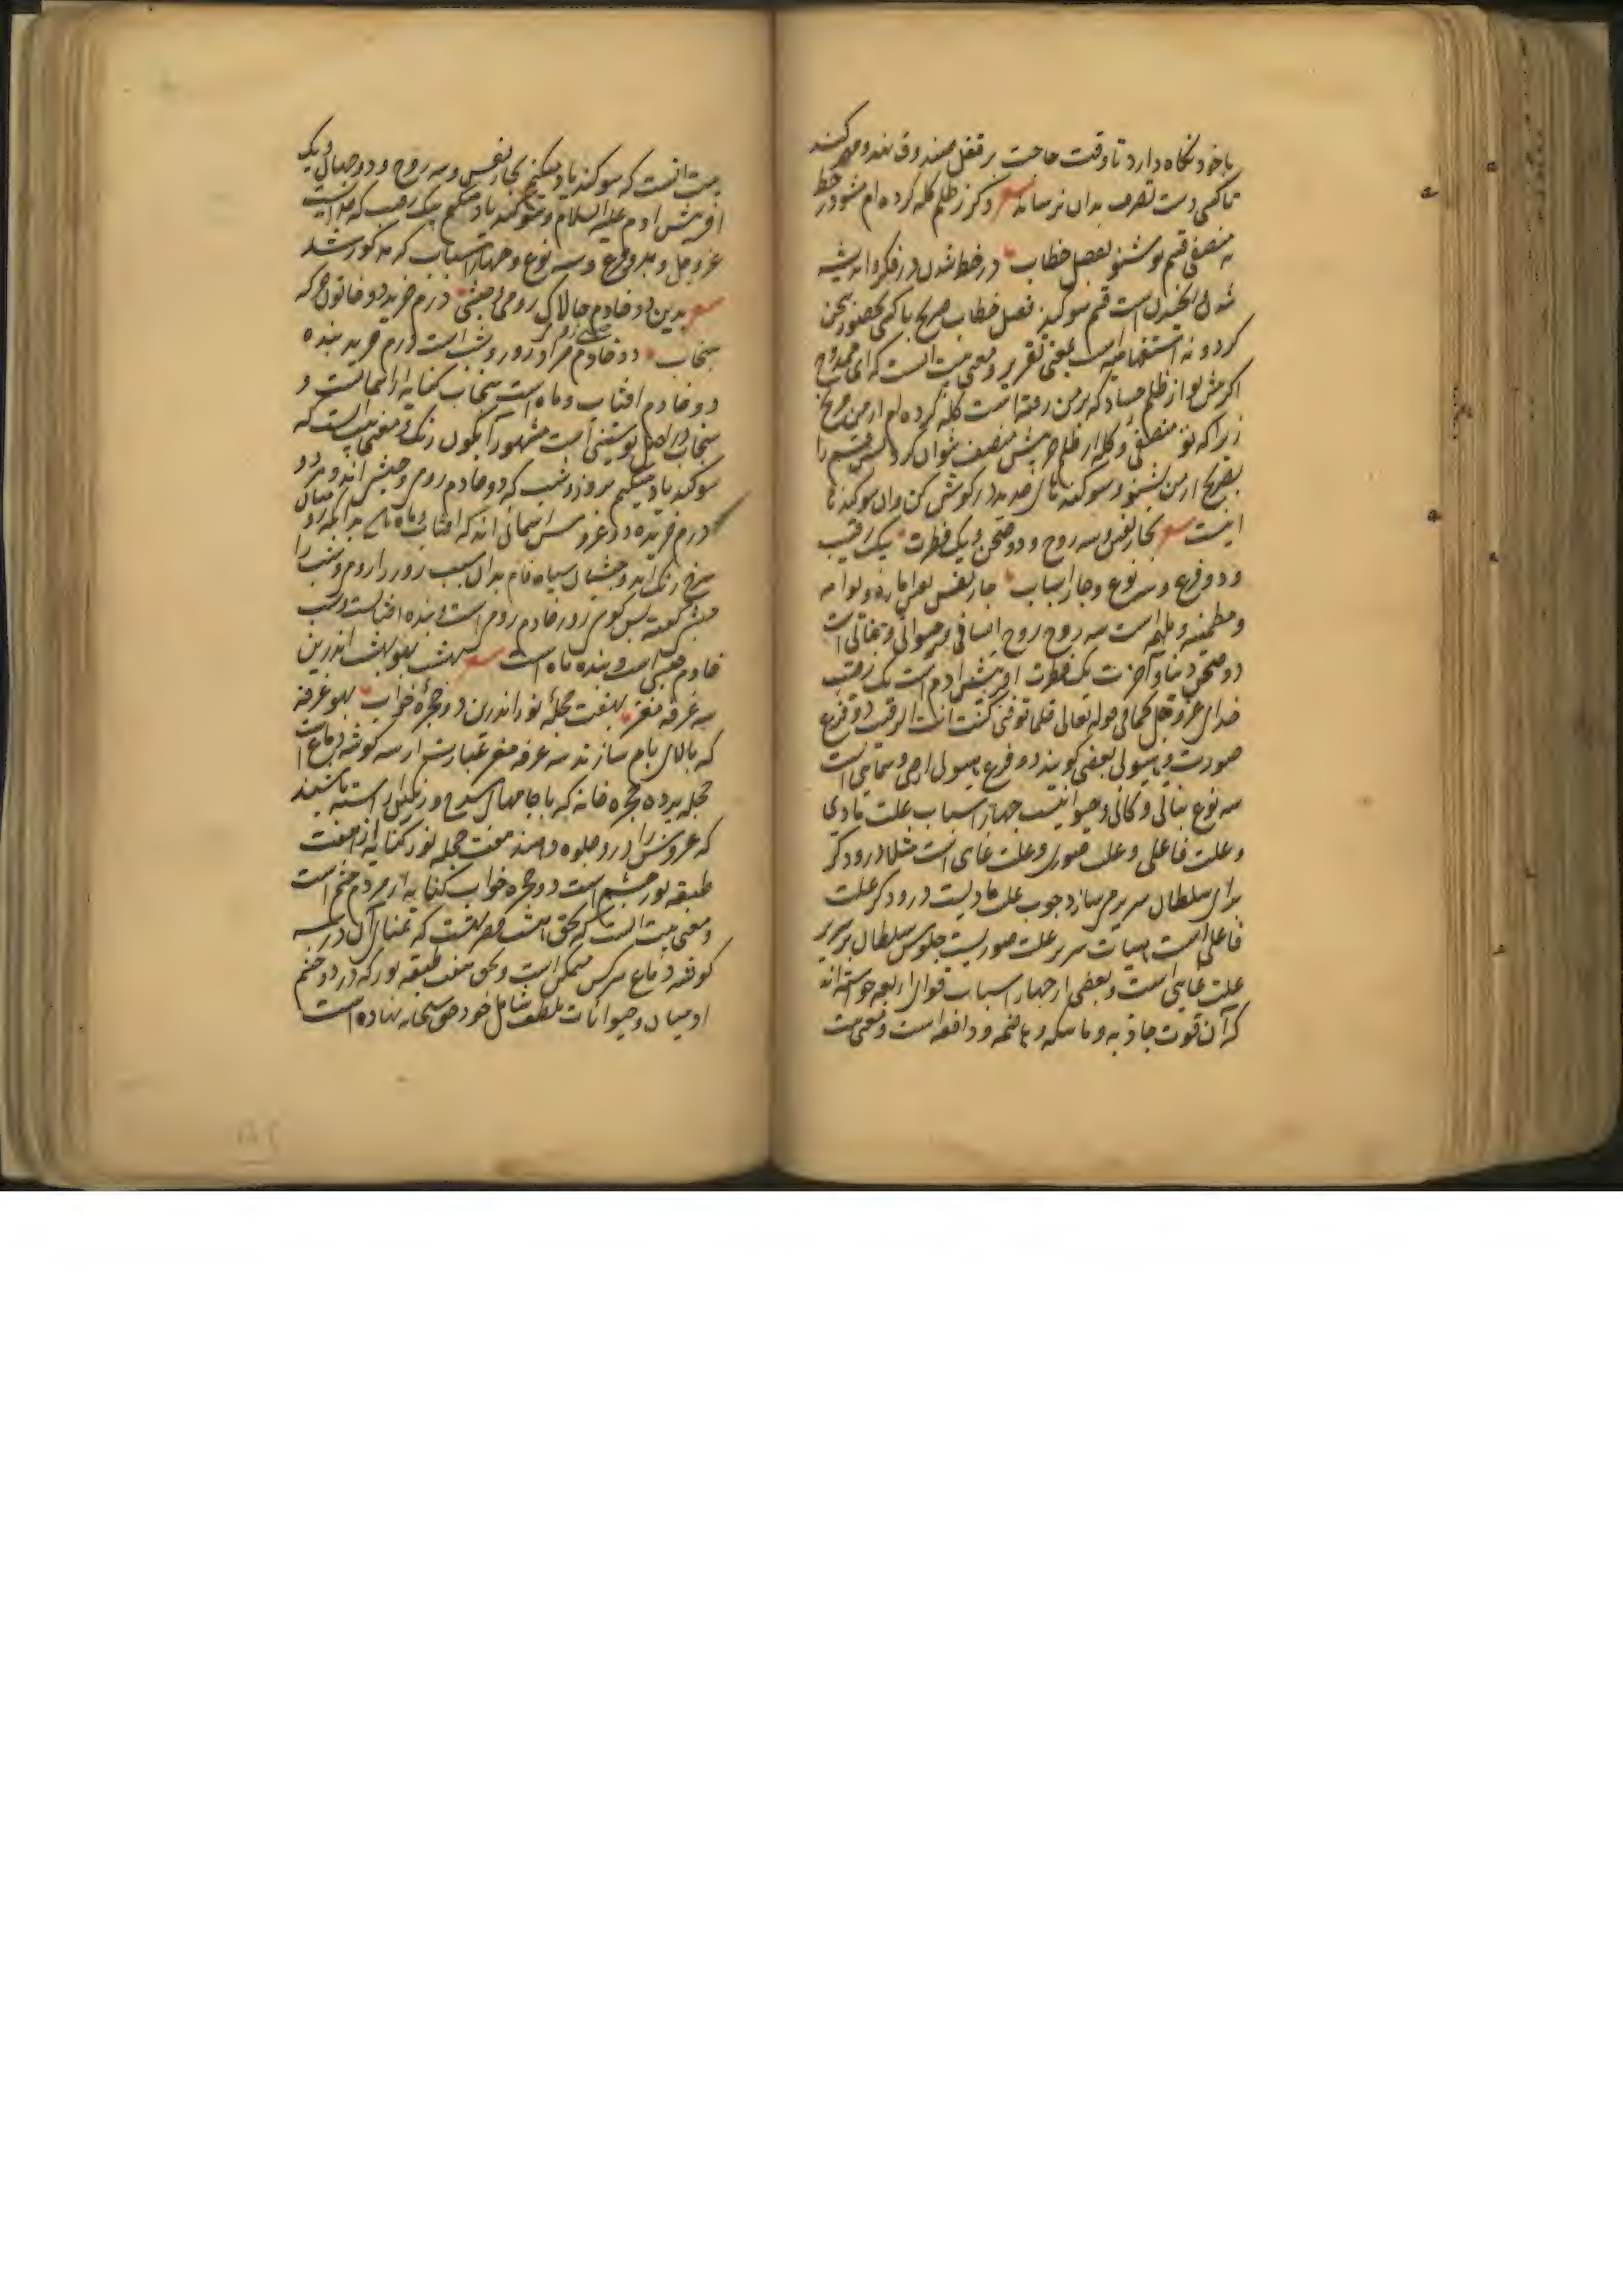 با خود نگاه دارد تا وقت حاجت بر قفل صندوق نهد و مهر کند
تا کسی دست تصرف بدان نرساند وگر ز ظلم گله کرده ام مشو در خط
نه منصفی قسم نو شنو بفصل خطاب در خط شدن در فکر و اندیشه
شدن است قسم سوگند فصل خطاب صریح با کسی بحضور سخن
کردن نه استفهامیه است بمعنی تقریر و معنی بیت آنست که ای ممدوح
اگر پیش تو از ظلم حساد که بر من رفته است گله کرده ام از من مرنج
زیرا که تو منصفی و گله از ظلم پیش منصف توان کرد پس قسم را
بصریح از من بشنو و سوگندهای در گوش کن و آن سوگندها
اینست بچار نفس و سه روح و دو صحن و یک فطرت بیک رقیب
و دو فرع و سه نوع و چار اسباب چار نفس نفس اماره و لوامه
و مطمئنه و ملهمه است سه روح روح انسانی و حیوانی و نباتی است
دو صحن دنیا و آخرت یک فطرت آفرینش آدم است یک رقیب
خدای عز و جل کما فی قوله تعالی فلما توفیتنی کنت انت الرقیب دو فرع
صورت و هیولی بعضی گویند دو فرع هیولی ارضی و سمایی است
سه نوع نباتی و کانی و حیوانیست چهار اسباب علت مادی
و علت فاعلی و علت صوری و علت غایی است مثلا درودگر
برای سلطان سریر می سازد چوب علت مادیست درودگر علت
فاعلی است هیات سریر علت صوریست جلوس سلطان بر سریر
علت غایی است و بعضی از چهار اسباب قوای اربعه خواسته اند
که آن قوت جاذبه و ماسکه و هاضمه و دافعه است و معنی بیت
بیت آنست که سوگند یاد میکنم بچار نفس و سه روح و دو جهان و یک
آفرینش آدم علیه السلام و سوگند یاد میکنم بیک رقیب که خداست
عز و جل و بدو فرع و سه نوع و چهار اسباب که مذکور شد
بدین دو خادم چالاک رومی و حبشی درم خرید دو خاتون خرگه
سنجاب دو خادم مراد روز و شب است درم خرید بنده
دو خادم آفتاب و ماه است سنجاب کنایه از آسمانست و
سنجاب در اصل پوستینی است مشهور آبگون رنگ و معنی بیت آنست که
سوگند یاد میکنم بروز و شب که دو خادم رومی و حبشی اند و هر دو
درم خریده دو عروس آسمانی اند که آفتاب و ماه
سرخ رنگ اند و حبشیان سیاه فام بدان سبب روز را روم و شب را
حبش گفته پس گویی روز خادم رومی است و بنده آفتابست و شب
خادم حبشی است و بنده ماه است بهشت بهو بهشت اندرین
سه غرفه مغز بهفت حجله نور اندرین دو حجره خواب بهو غرفه
که بالای بام سازند سه غرفه مغز عبارت از سه گوشه دماغ است
حجله پرده حجره خانه که با جامهای سرخ و رنگین آراسته باشند
که عروس را درو جلوه دهند هفت حجله نور کنایه از هفت
طبقه نور چشم است دو حجره خواب کنایه از مردم چشم است
و معنی بیت آنست که بحق هشت قصر بهشت که تمنای آن در سه
گوشه دماغ هر کس متمکن است و بحق هفت طبقه نور که در دو چشم
آدمیان و حیوانات بلطف شامل خود حق سبحانه نهاده است